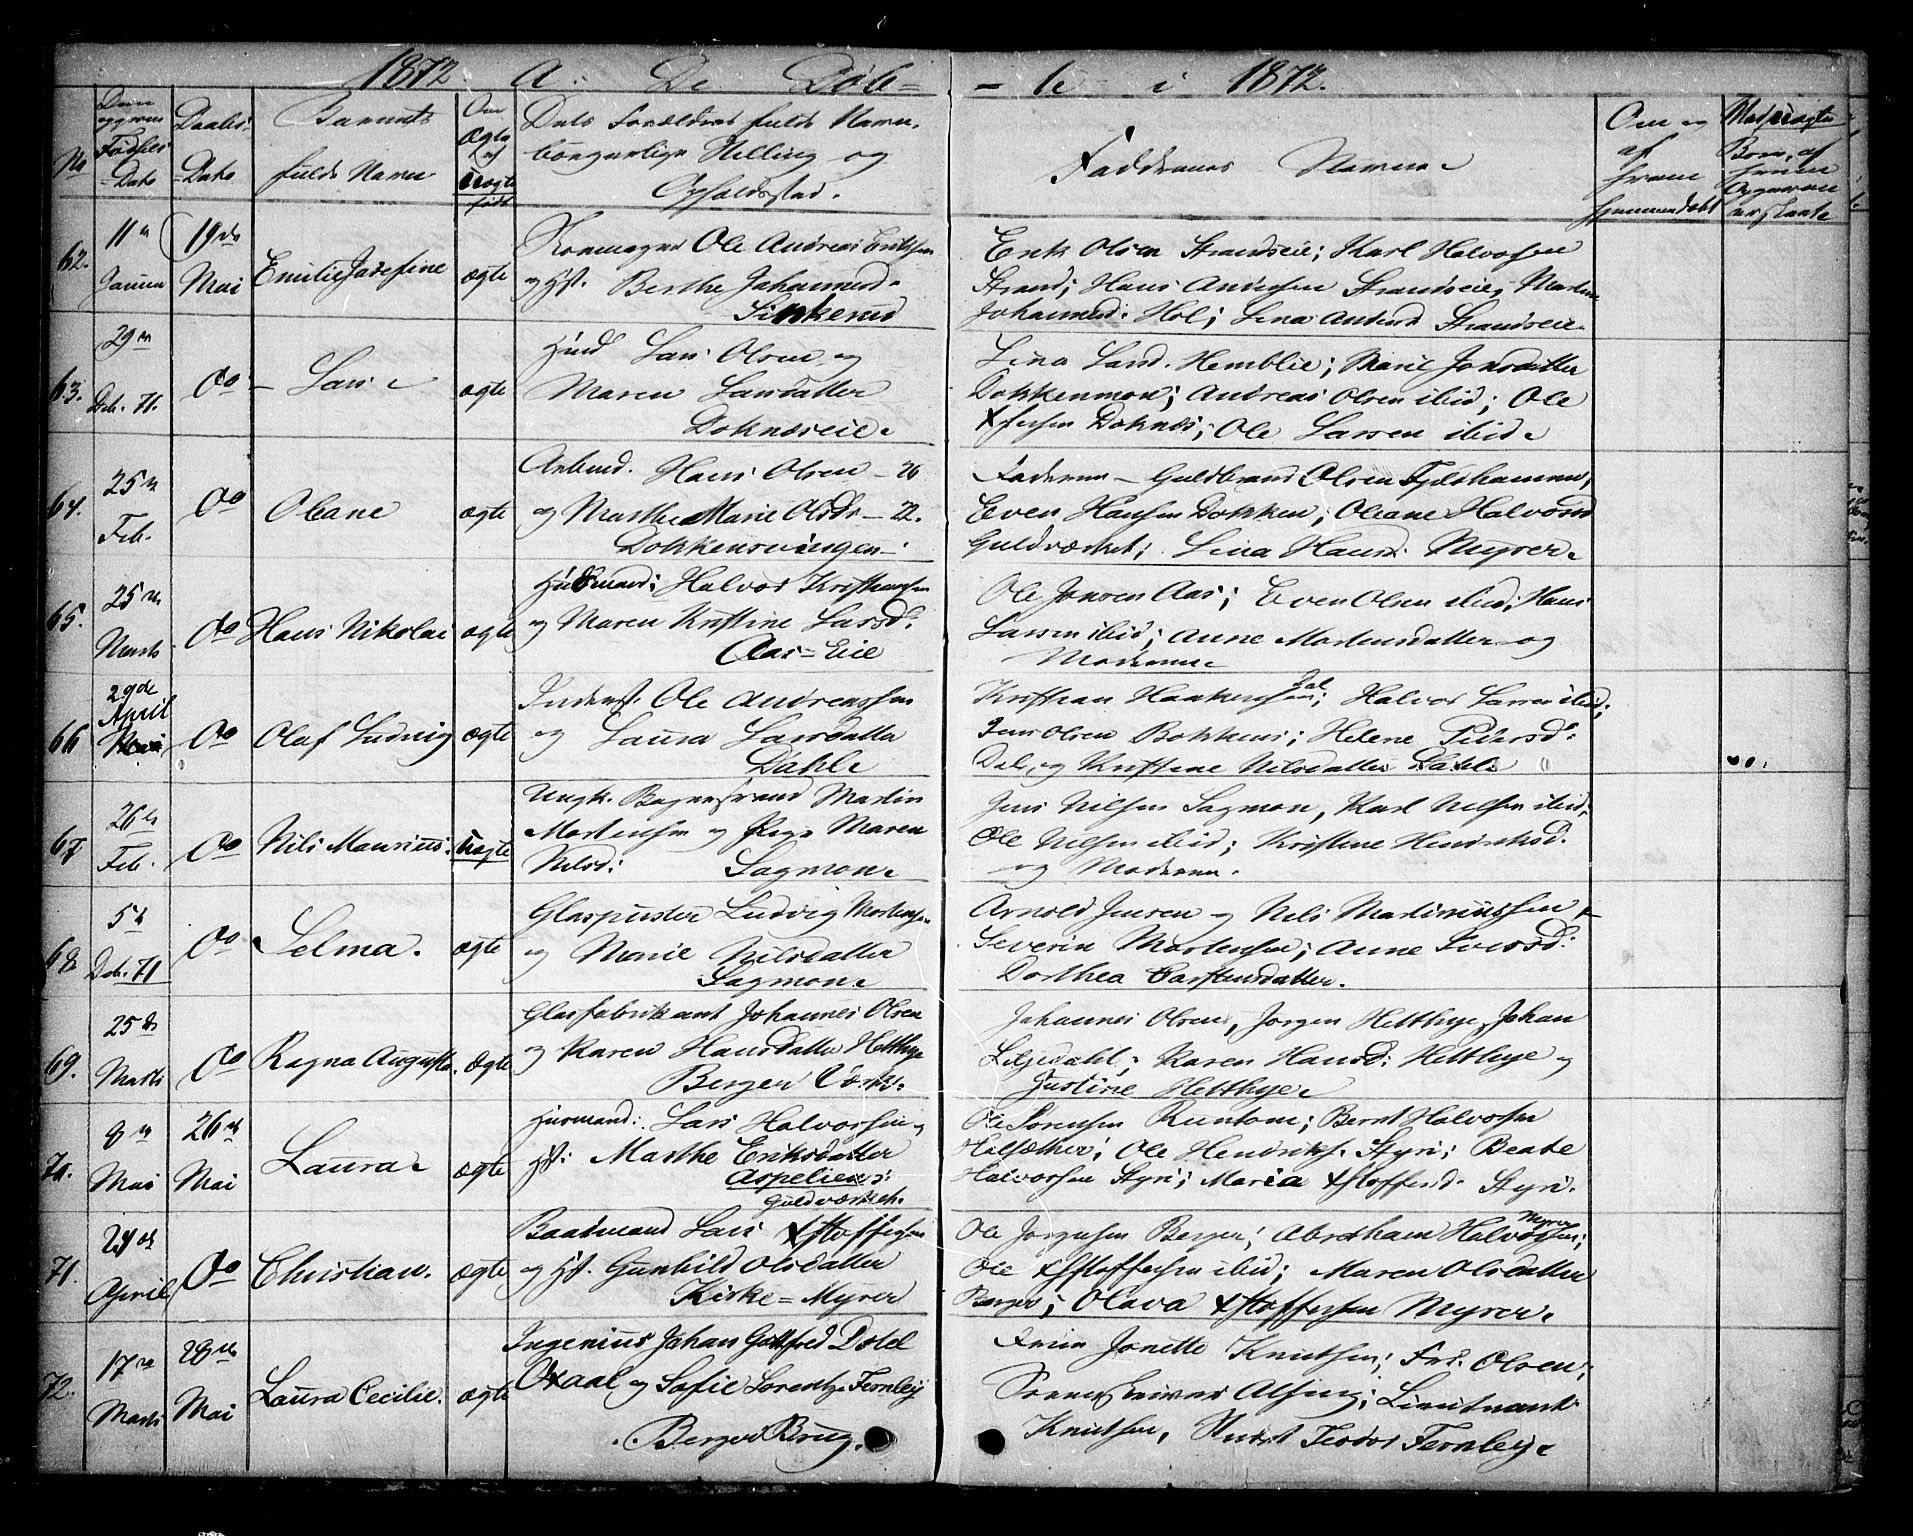 1872 A. De Døb= - te i 1872.
No
Dato
Daabs-
Dato
Barnets
fulde Navn
Om
Ægte
el
Uægte
født
Dets Forældres fulde Navn
borgerlige Stilling og
Opholdssted.
Faddernes Navne
Om og
af
hvem
hjemmedøbt
62.
11te
19de
Mai
Emilie Josefine
ægte
Ole Andreas Eriksen
og Hst. Berthe Johannesd.
Sinkerud
Erik Olsen Strandseie; Karl Halvorsen
Strand; Hans Andersen Strandseie,
Johannesd. Hol; Lina Strandseie
63.
29de
Dcb. 71.
Do
Lars
ægte
Lars Olsen og
Maren Larsdatter
Doknæseie
Lina Larsd. Hemblie; Marie Jonsdatter
Dokkenmon; Andreas Olsen ibid; Ole
Doknes; Ole Larsen ibid
64.
25de
Feb.
Do
Oleane
ægte
Arbmd. Hans Olsen – 26
og Marthe Marie Olsdr – 22.
Dokkensvingen
Faderen – Guldbrand Olsen Fjeldhammer,
Even Hansen Dokken; Oleane Halvorsd
Guldværket; Lina Hansd. Myrer.
65.
25de
Marts
Do
Hans Nikolai
ægte
Husmand: Halvor Kristiansen
og Maren Kristine Larsd.
Aas=Eie
Ole Jonsen Aas; Even Olsen ibid; Hans
Larsen ibid; Anne Mortensdatter og
Moderen
66
29de
April
Do
Olaf Ludvig
ægte
Inderst. Ole Andreassen
og Laura Larsdatter
Dahl
Kristian Haakensen Dal; Halvor Larsen ibid;
Jens Olsen Bokkens; Helene Pedersd.
Dal, og Kristine Nilsdatter Dahl
67
26de
Feb.
Do
Nils Maurius.
Uægte
Ungk. Martin
Mortensen og Pige Maren
Nilsd: Sagmon
Jens Nilsen Sagmon, Karl Nilsen ibid,
Ole Nilsen ibid; Kristine Henriksd.
og Moderen.
68
5te
Dcb. 71
Do
Selma.
ægte
Glaspuster Ludvig Mortensen
og Marie Nilsdatter
Sagmon
Arnold Jensen og Nils Martiniussen
Severin Mortensen; Anne Iversd:
Dorthea Carstensdatter.
69.
25de
Marts
Do
Ragna Augusta.
Ægte
Glasfabrikant Johannes Olsen
og Karen Hansdatter Hetthye
Berger Værk.
Johannes Olsen, Jørgen Hetthye, Johan
Liljedahl; Karen Hansd: Hetthye og
Justine Hetthye
70.
8de
Mai
26de
Mai
Laura
ægte
Husmand: Lars Halvorsen og
Hst: Marthe Eriksdatter
Aspelien:
Guldværket.
Ole Sørensen Runtom; Bernt Halvorsen
; Ole Hendriks. Styri; Beate
Halvorsen Styri; Maria Styri.
71.
24de
April
Do
Christian.
ægte
Baadsmand Lars Xstoffersen
og Hst. Gunhild Olsdatter
Kirke=Myrer
Ole Jørgensen Berger; Abraham Halvorsen Myrer;
Ole Xstoffersen ibid; Maren Olsdatter
Berger; Olava Xstoffersen Myrer.
72.
17de
Marts
28de
Mai
Laura Cecilie.
ægte
Ingeniør Johan Gottfred Dotel
Oxaal og Sofie Lorentze Fernley
Berger Brug.
Fruen Jonette Knutsen; Frk. Olsen;
Alsing; Lieutnant
Knutsen, Student Teodor Fernley